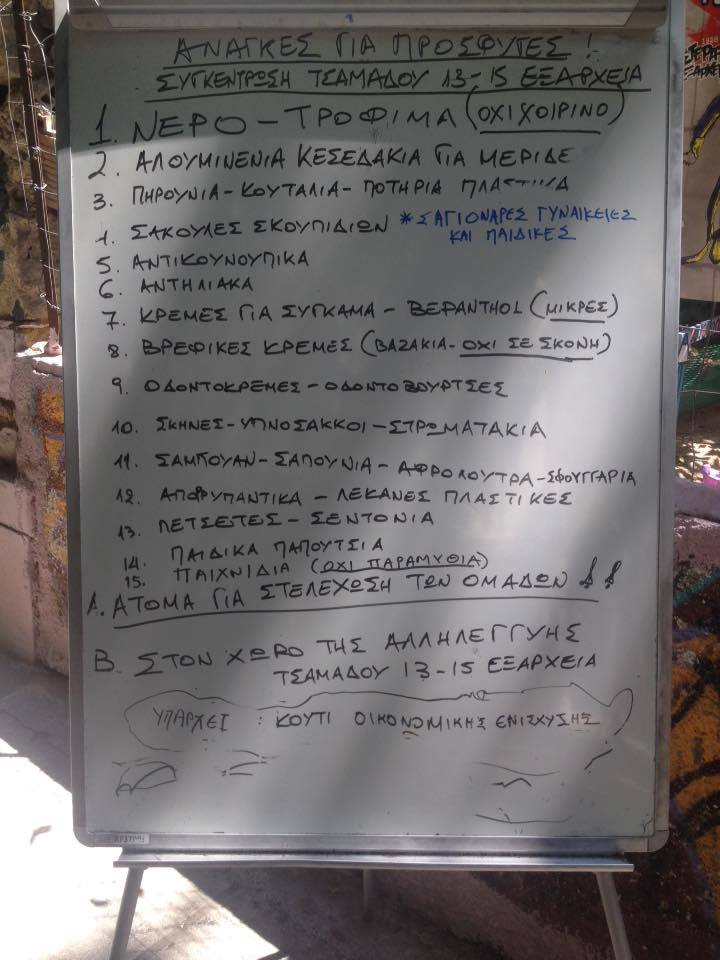 ΑΝΑΓΚΕΣ ΓΙΑ ΠΡΟΣΦΥΓΕΣ !
ΣΥΓΚΕΝΤΡΩΣΗ ΤΣΑΜΑΔΟΥ 13-15 ΕΞΑΡΧΕΙΑ
1. ΝΕΡΟ - ΤΡΟΦΙΜΑ (ΟΧΙ ΧΟΙΡΙΝΟ)
2. ΑΛΟΥΜΙΝΕΝΙΑ ΚΕΣΕΔΑΚΙΑ ΓΙΑ ΜΕΡΙΔΕ
3. ΠΗΡΟΥΝΙΑ - ΚΟΥΤΑΛΙΑ - ΠΟΤΗΡΙΑ ΠΛΑΣΤΙΚΑ
4. ΣΑΚΟΥΛΕΣ ΣΚΟΥΠΙΔΙΩΝ * ΣΑΓΙΟΝΑΡΕΣ ΓΥΝΑΙΚΕΙΕΣ
ΚΑΙ ΠΑΙΔΙΚΕΣ
5. ΑΝΤΙΚΟΥΝΟΥΠΙΚΑ
6. ΑΝΤΗΛΙΑΚΑ
7. ΚΡΕΜΕΣ ΓΙΑ ΣΥΓΚΑΜΑ - ΒΕΡΑΝΤΗΟL (ΜΙΚΡΕΣ)
8. ΒΡΕΦΙΚΕΣ ΚΡΕΜΕΣ (ΒΑΖΑΚΙΑ - ΟΧΙ ΣΕ ΣΚΟΝΗ)
9. ΟΔΟΝΤΟΚΡΕΜΕΣ - ΟΔΟΝΤΟΒΟΥΡΤΣΕΣ
10. ΣΚΗΝΕΣ - ΥΠΝΟΣΑΚΚΟΙ - ΣΤΡΩΜΑΤΑΚΙΑ
11. ΣΑΜΠΟΥΑΝ - ΣΑΠΟΥΝΙΑ - ΑΦΡΟΛΟΥΤΡΑ - ΣΦΟΥΓΓΑΡΙΑ
12. ΑΠΟΡΥΠΑΝΤΙΚΑ - ΛΕΚΑΝΕΣ ΠΛΑΣΤΙΚΕΣ
13. ΠΕΤΣΕΤΕΣ - ΣΕΝΤΟΝΙΑ
14. ΠΑΙΔΙΚΑ ΠΑΠΟΥΤΣΙΑ
15. ΠΑΙΧΝΙΔΙΑ (ΟΧΙ ΠΑΡΑΜΥΘΙΑ)
Α. ΑΤΟΜΑ ΓΙΑ ΣΤΕΛΕΧΩΣΗ ΤΩΝ ΟΜΑΔΩΝ !!
Β. ΣΤΟΝ ΧΩΡΟ ΤΗΣ ΑΛΛΗΛΕΓΓΥΗΣ
ΤΣΑΜΑΔΟΥ 13-15 ΕΞΑΡΧΕΙΑ
ΥΠΑΡΧΕΙ : ΚΟΥΤΙ ΟΙΚΟΝΟΜΙΚΗΣ ΕΝΙΣΧΥΣΗΣ